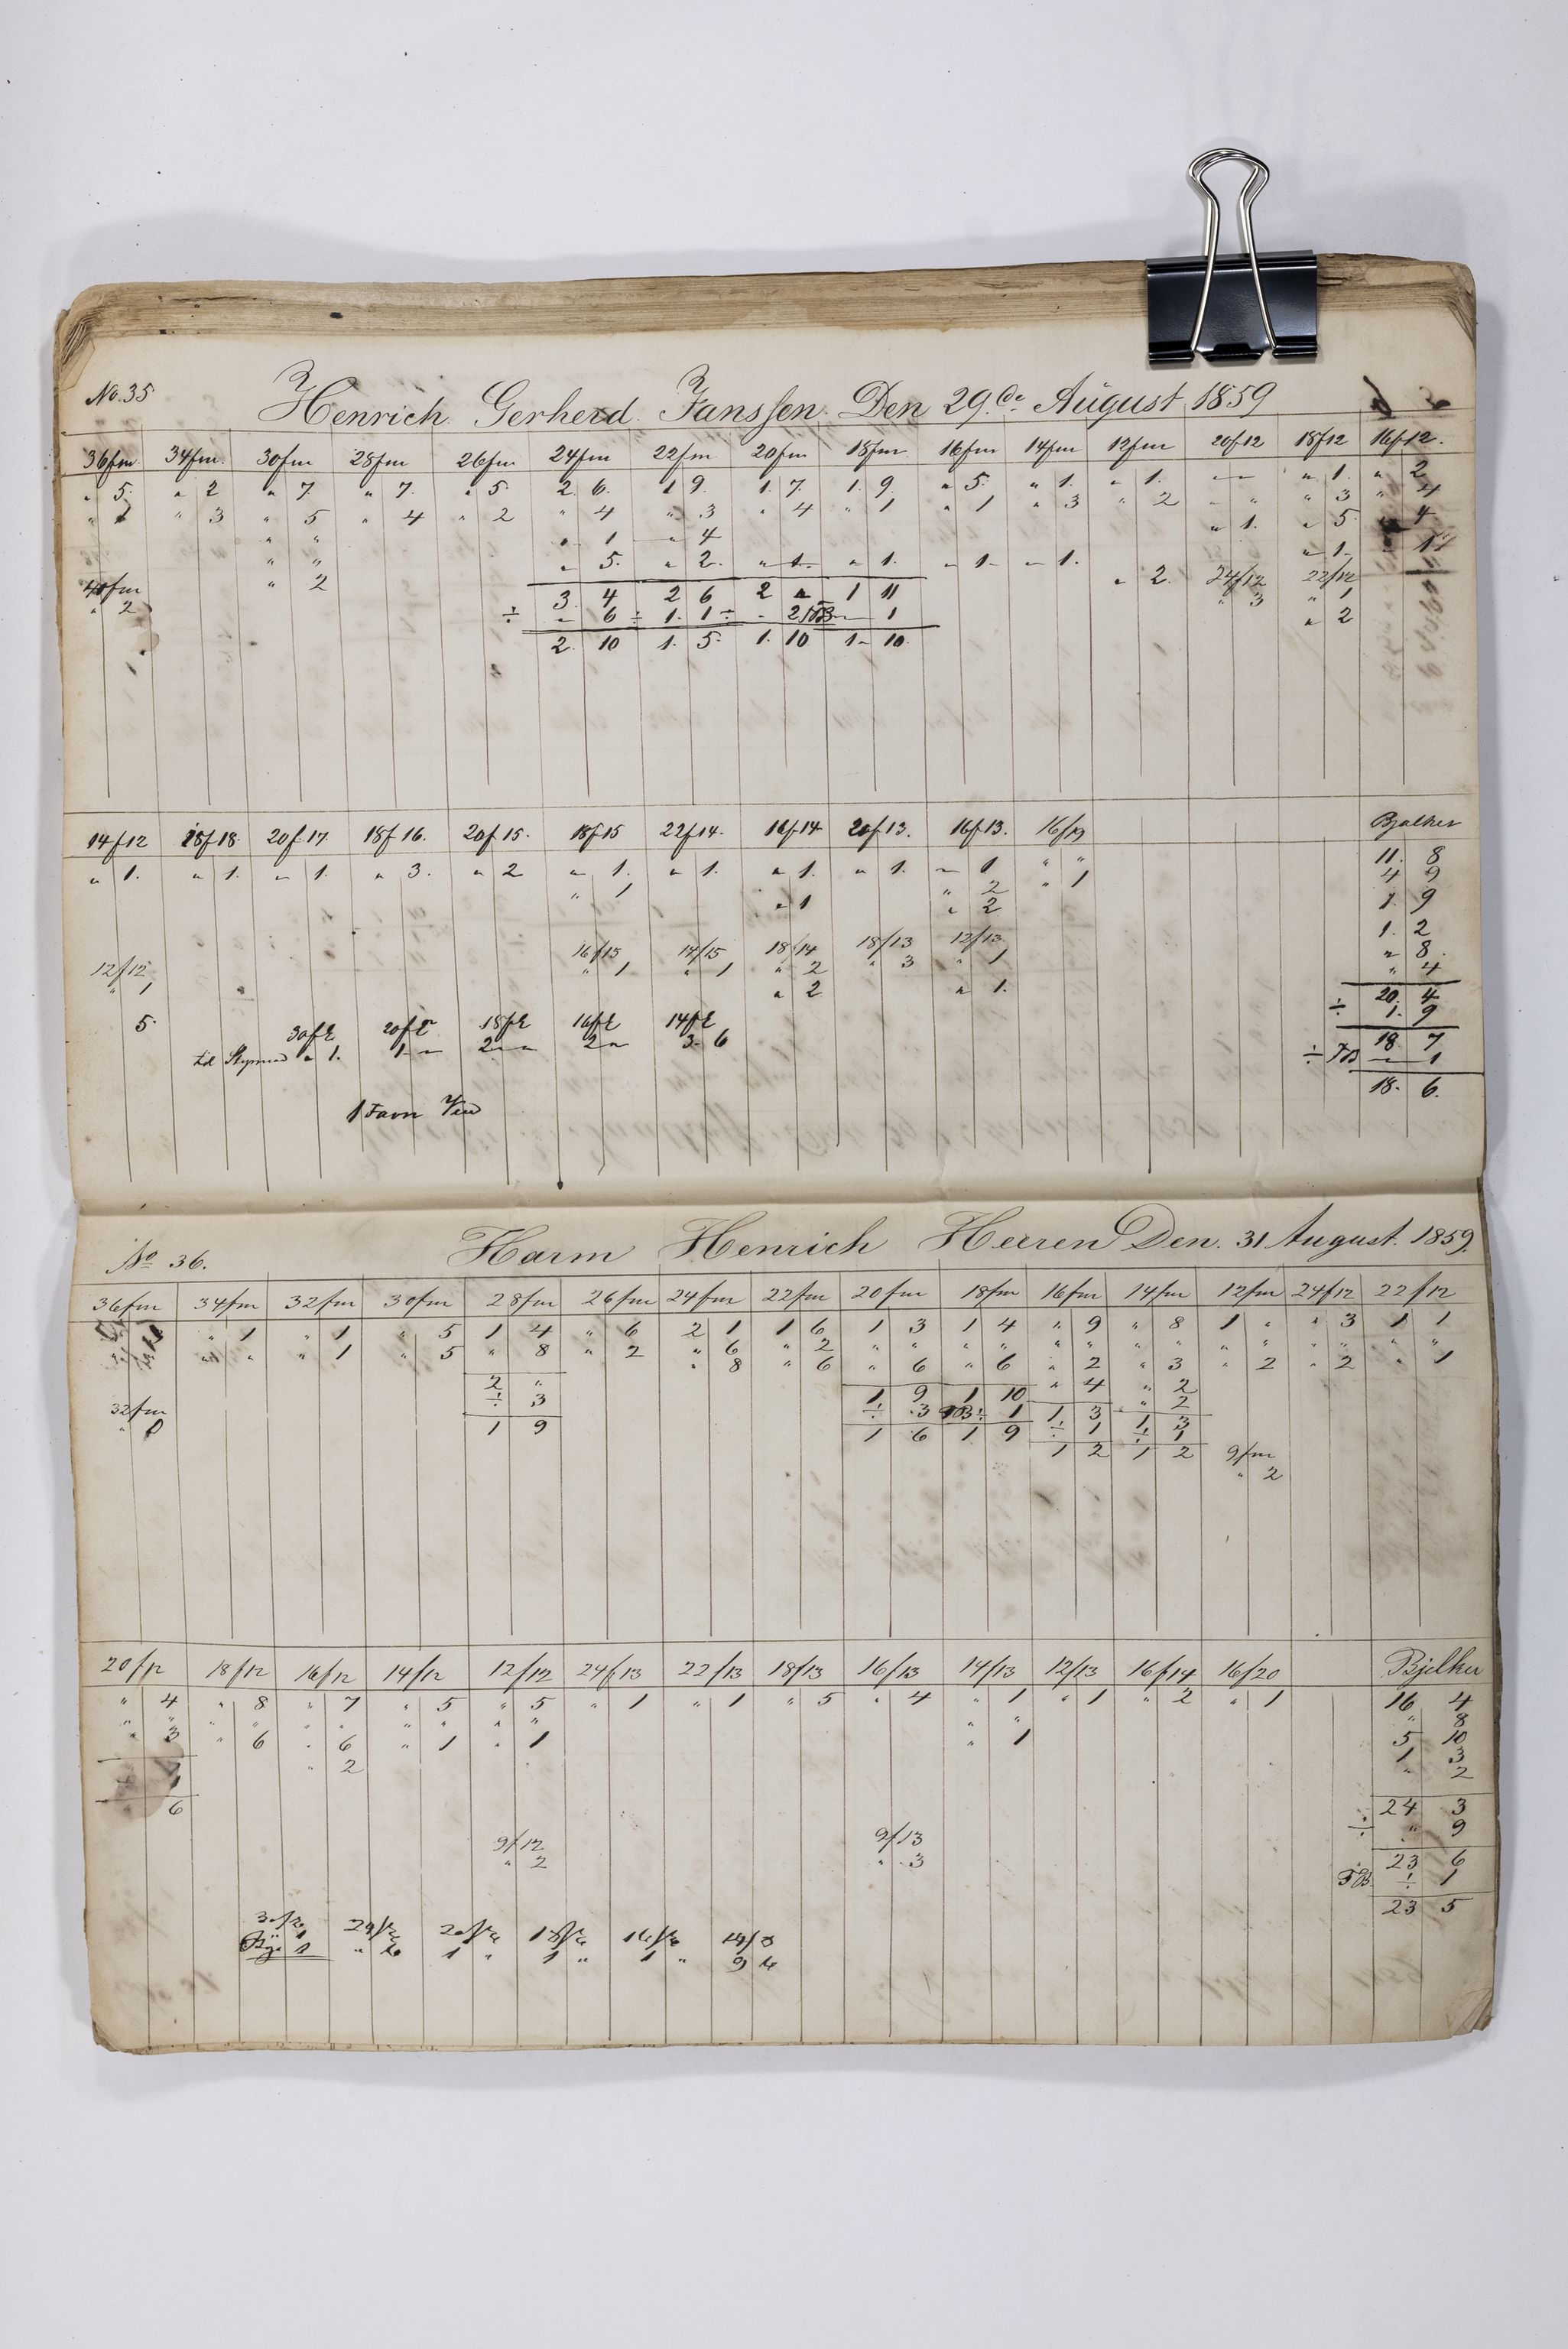 No. 35
Henrich Gerherd Janssen. Den 29. August 1859
36fm 34fm. 30fm 28fm 26fm 24fm 22fm 20fm 18fm 16fm 14fm 12fm 20f12 18f12 16f12.
" 5. " 2 " 7. " 7. " 5. 2. 6. 1 9. 1. 7. 1. 9. " 5. " 1. " 1. " " " 1. " 2
" 3 " 5 " 4 " 2 " 4 " 3 " 4 " 1 " 1 " 3 " 2 " " " 3 " 4
" " " 1 " 4 " 1. " 5 4
" " " 5. " 2. " 1. " 1. " 1. " 1. " 1.
40fm " 2 " 2. 24/12 22/12
" 2 3. 4 2 6 2 " 1 11 " 3 " 1
÷ " 6 ÷ 1. 1 ÷ " 2 " 1 " 2
2. 10 1. 5. 1. 10 1. 10.
14f12 18f18 20f17. 18f16. 20f15. 18f15 22f14. 20f13. 16f13. 16/19 Bjalker
" 1. " 1. " 1. " 3. " 2 " 1. " 1. " 1. " 1. " 1 " " 11. 8
" 1 " 2 " 1 4 9
" 1 " 2 1. 9
1. 2
16/15 14/15 18/14 18/13 12/13 " 8.
12/12 " 1 " 1 " 2 " 3 " 1 " 4
" 1 " 2 " 1. 20. 4
5. 30f 20f 18f 16f 14f ÷ 1. 9
" 1. 1 " 2 " 2 " 3. 6 18 7
÷ TB " 1
1 Favn Ved 18. 6.
No 36.
Harm Henrich Herren Den. 31 August. 1859.
36fm 34fm 32fm 30fm 28fm 26fm 24fm 22fm 20fm 18fm 16fm 14fm 12fm 24f12 22/12
" 1 " 1 " 5 1 4 " 6 2 1 1 6 1 3 1 4 " 9 " 8 1 " " 3 1 1
" " " 1 " 5 " 8 " 2 " 6 " 2 " " " " " " " " " " " " " "
" 8 " 6 " 6 " 6 " 2 " 3 " 2 " 2 " 1
2 " 1 9 1 10 " 4 " 2
32fm ÷ 3 ÷ 3 ÷ 1 1 3 " 2
1 9 1 6 1 9 ÷ 1 1 3
÷ 1
1 2 1 2 9/fm
" 2
20/12 18/12 16/12 14/12 12/12 24/13 22/13 18/13 16/13 14/13 12/13 16/14 16/20 Bjelker
" 4 " 8 " 7 " 5 " 5 " 1 " 1 " 5 " 4 " 1 " 1 " 2 " 1 16 4
" " " " " " " " " " " " " 8
" 3 " 6 " 6 " 1 " 1 " 1 5 10
" 2 1 3
" 2
6 24 3
9/12 9/13 ÷ " 9
" 2 " 3 23 6
TB ÷ 1
23 5